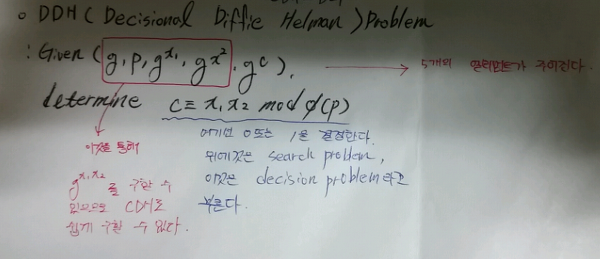 o DDH (Decisional Diffie Helman) Problem
: Given (g, p, g^x₁, g^x₂, g^c),
→ 5개의 엘리먼트가 주어진다.
determine c ≡ x₁x₂ mod φ(p)
이것을 통해
g^x₁x₂ 를 구할 수
있으므로 CDH도
쉽게 구할 수 없다.
여기선 0또는 1을 결정한다.
위에것은 search problem,
이것은 decision problem라고
부른다.